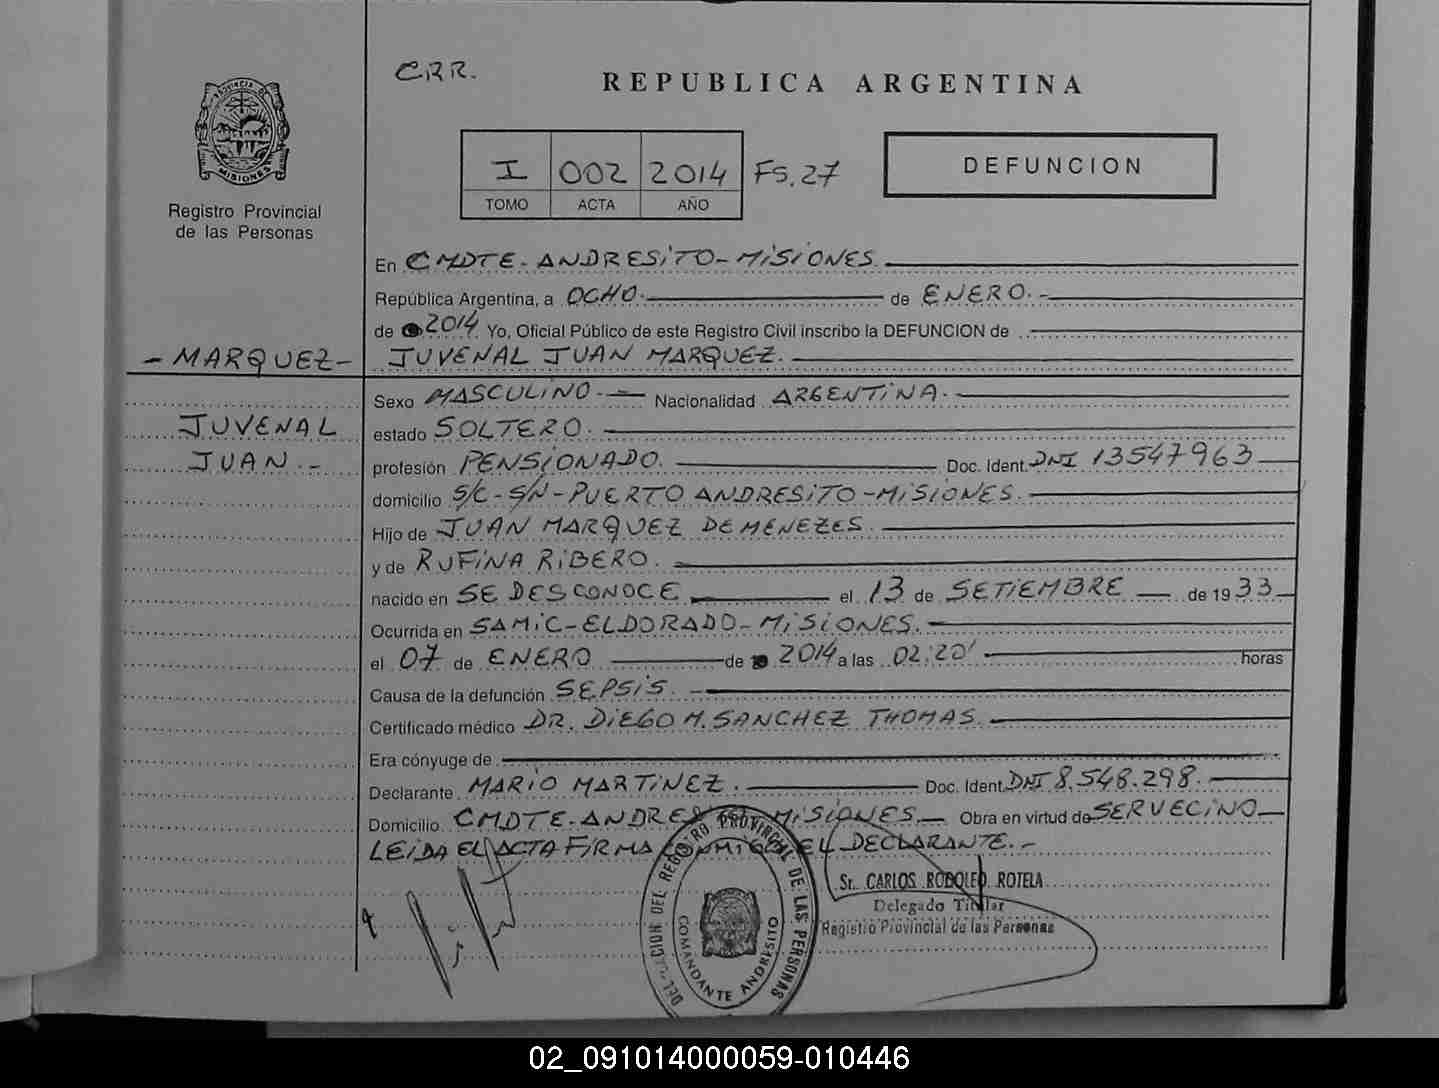 CRR.
REPUBLICA ARGENTINA
PROVINCIA DE
MISIONES
I 002 2014 FS.27
TOMO ACTA AÑO
DEFUNCION
Registro Provincial
de las Personas
En CMDTE-ANDRESITO-MISIONES
República Argentina, a OCHO de ENERO.-
de 2014 Yo, Oficial Público de este Registro Civil inscribo la DEFUNCION de
-MARQUEZ- JUVENAL JUAN MARQUEZ.
Sexo MASCULINO.- Nacionalidad ARGENTINA.
JUVENAL estado SOLTERO.
JUAN.- profesión PENSIONADO. Doc. Ident. DNI 13547963
domicilio S/C-S/N-PUERTO ANDRESITO-MISIONES.
Hijo de JUAN MARQUEZ DE MENEZES.
y de RUFINA RIBERO.
nacido en SE DESCONOCE el 13 de SETIEMBRE de 1933
Ocurrida en SAMIC-ELDORADO-MISIONES.
el 07 de ENERO de 2014 a las 02:20' horas
Causa de la defunción SEPSIS.
Certificado médico DR. DIEGO M. SANCHEZ THOMAS.
Era cónyuge de
Declarante MARIO MARTINEZ. Doc. Ident. DNI 8.548.298.
Domicilio CMDTE-ANDRESITO-MISIONES. Obra en virtud de SERVECINO
LEIDA EL ACTA FIRMA CONMIGO EL DECLARANTE.-
Sr. CARLOS RODOLFO ROTELA
Delegado Titular
Registro Provincial de las Personas
DELEGACION DEL REGISTRO PROVINCIAL DE LAS PERSONAS
COMANDANTE ANDRESITO
02_091014000059-010446